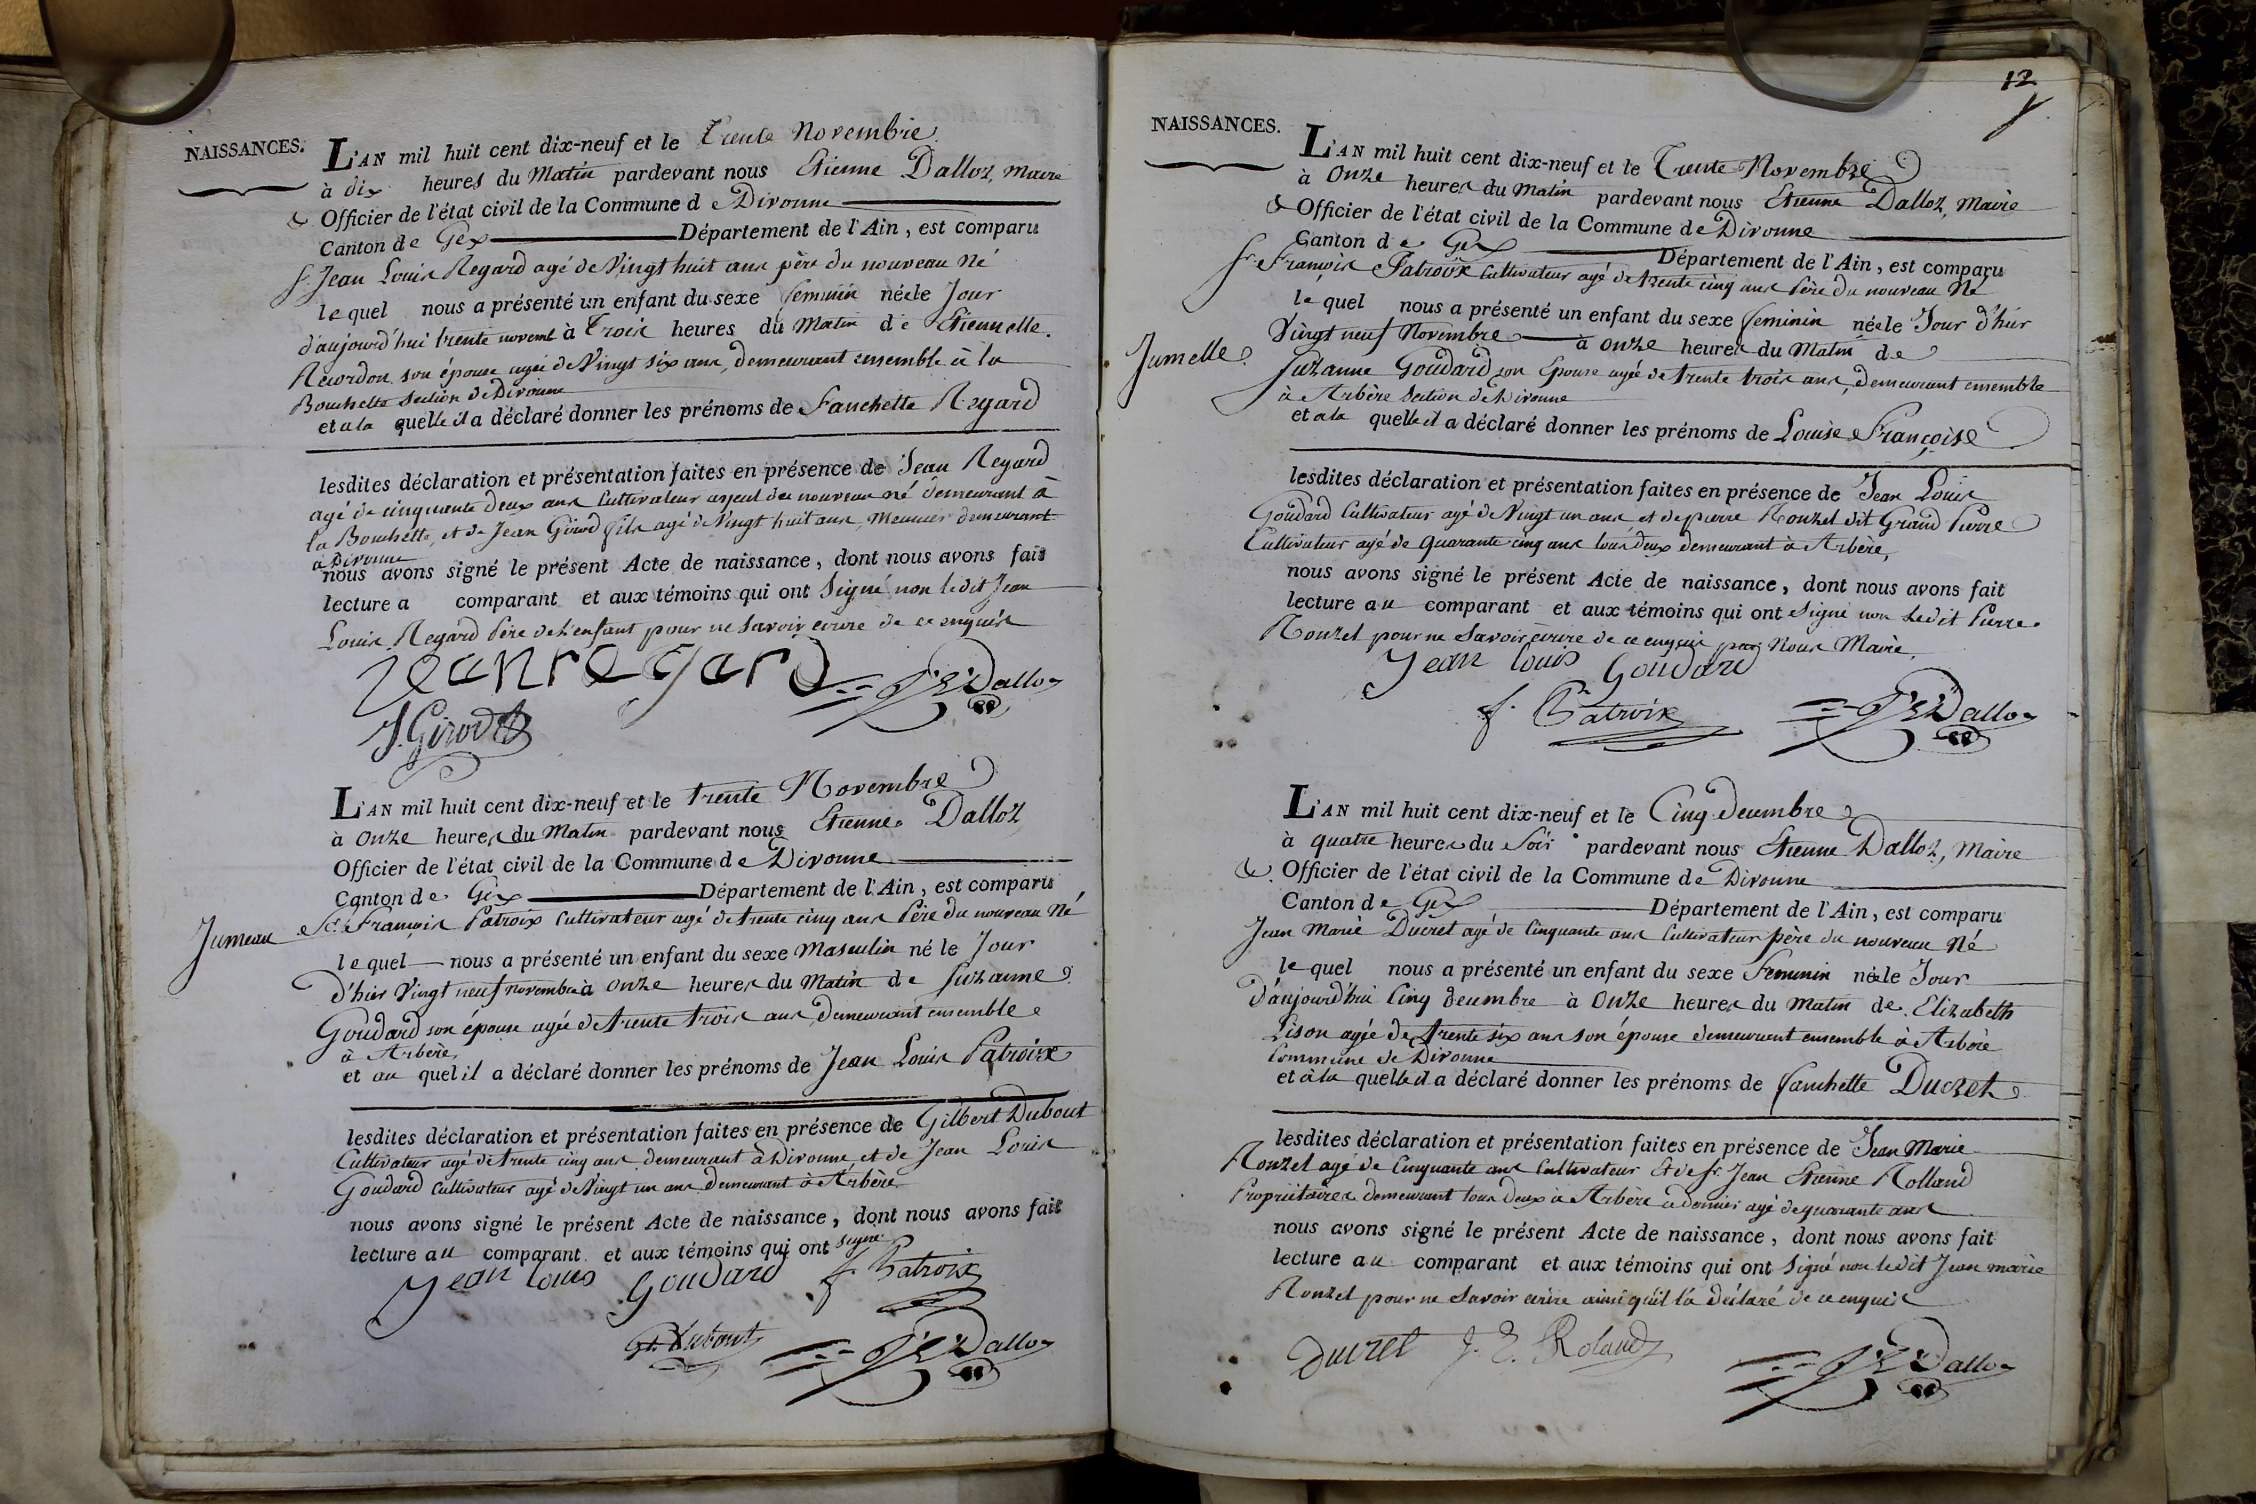 NAISSANCES.
L'AN mil huit cent dix-neuf et le trente Novembre
à dix heures du Matin pardevant nous Etienne Dalloz, Maire
& Officier de l'état civil de la Commune de Divonne
Canton de Gex Département de l'Ain, est comparu
Sr. Jean Louis Regard agé de Vingt huit ans père du nouveau Né
le quel nous a présenté un enfant du sexe feminin née le Jour
d'aujourd'hui trente novemb à Trois heures du Matin de Etiennette
Recordon son épouse agée de Vingt six ans, demeurant ensemble à la
Bouchette section de Divonne
et a la quelle il a déclaré donner les prénoms de Fanchette Regard
lesdites déclaration et présentation faites en présence de Jean Regard
agé de cinquante deux ans Cultivateur ayeul du nouveau né demeurant à
la Bouchette, et de Jean Girod fils agé de Vingt huit ans, Meunier demeurant
à Divonne
nous avons signé le présent Acte de naissance, dont nous avons fait
lecture a comparant et aux témoins qui ont Signé non le dit Jean
Louis Regard Père de l'enfant pour ne Savoir écrire de ce enquis
jean regard J. E. Dalloz
J. Girod
L'AN mil huit cent dix-neuf et le trente Novembre
à onze heures du Matin pardevant nous Etienne Dalloz
Officier de l'état civil de la Commune de Divonne
Canton de Gex Département de l'Ain, est comparu
Jumeau Sr. François Patroix Cultivateur agé de trente cinq ans Père du nouveau Né
le quel nous a présenté un enfant du sexe Masculin né le Jour
d'hier Vingt neuf novembre à onze heures du Matin de Suzanne
Goudard son épouse agée de trente trois ans, demeurant ensemble
à Arbère
et au quel il a déclaré donner les prénoms de Jean Louis Patroix
lesdites déclaration et présentation faites en présence de Gilbert Dubout
Cultivateur agé de trente cinq ans demeurant à Divonne et de Jean Louis
Goudard Cultivateur agé de Vingt un ans demeurant à Arbère
nous avons signé le présent Acte de naissance, dont nous avons fait
lecture au comparant et aux témoins qui ont signé
Jean Louis Goudard f. Patroix
G. Dubout J. E. Dalloz
12
NAISSANCES.
L'AN mil huit cent dix-neuf et le Trente Novembre
à Onze heures du Matin pardevant nous Etienne Dalloz, Maire
& Officier de l'état civil de la Commune de Divonne
Canton de Gex Département de l'Ain, est comparu
Sr. François Patroix Cultivateur agé de trente cinq ans Père du nouveau Né
le quel nous a présenté un enfant du sexe feminin née le Jour d'hier
Vingt neuf Novembre à onze heures du Matin de
Jumelle Suzanne Goudard son Epouse agée de trente trois ans, demeurant ensemble
à Arbère Section de Divonne
et a la quelle il a déclaré donner les prénoms de Louise Françoise
lesdites déclaration et présentation faites en présence de Jean Louis
Goudard Cultivateur agé de Vingt un ans, et de pierre Rouzet dit Grand Pierre
Cultivateur agé de Quarante cinq ans tous deux demeurant à Arbère,
nous avons signé le présent Acte de naissance, dont nous avons fait
lecture au comparant et aux témoins qui ont Signé non ledit Pierre
Rouzet pour ne Savoir écrire de ce enquis par Nous Maire,
Jean Louis Goudard
f. Patroix J. E. Dalloz
L'AN mil huit cent dix-neuf et le Cinq decembre
à quatre heures du Soir pardevant nous Etienne Dalloz, Maire
& Officier de l'état civil de la Commune de Divonne
Canton de Gex Département de l'Ain, est comparu
Jean Marie Ducret agé de Cinquante ans Cultivateur père du nouveau Né
le quel nous a présenté un enfant du sexe Feminin née le Jour
d'aujourd'hui Cinq decembre à Onze heures du Matin de Elizabeth
Lison agée de trente six ans son épouse demeurant ensemble à Arbère
Commune de Divonne
et à la quelle il a déclaré donner les prénoms de fanchette Ducret
lesdites déclaration et présentation faites en présence de Jean Marie
Rouzet agé de Cinquante ans Cultivateur Et de Sr. Jean Etienne Rolland
Propriétaires demeurant tous deux à Arbère ce dernier agé de quarante ans
nous avons signé le présent Acte de naissance, dont nous avons fait
lecture au comparant et aux témoins qui ont Signé non le dit Jean marie
Rouzet pour ne Savoir écrire ainsi qu'il l'a déclaré de ce enquis
Ducret J. E. Roland J. E. Dalloz